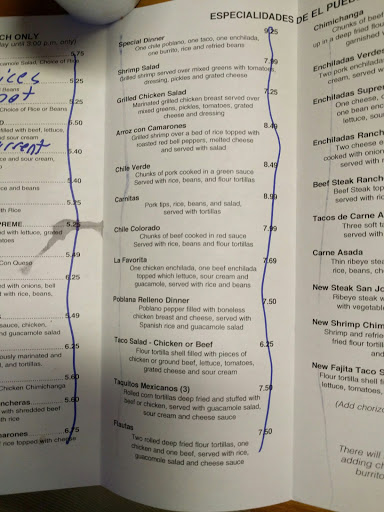 CH ONLY
day until 3:00 p.m. only)
5.75
camole Salad, Choice of Rice
5.25
Beans
5.25
Choice of Rice or Beans
5.50
filled with beef, lettuce,
d sour cream
5.40
ce and sour cream,
5.40
ice and beans
5.25
th Rice
PREME
5.25
d with lettuce, grated
atoes
5.49
Con Queso
6.25
d with onions, bell
d with rice, beans,
5.49
sauce, chicken,
nd guacamole salad
6.25
ously marinated and
l, and tortillas,
5.60
Chicken Chimichanga
ncheras
5.60
with shredded beef
th rice
marones
6.75
f rice topped with cheese
ESPECIALIDADES DE EL PUE
Special Dinner 9.25
One chile poblano, one taco, one enchilada,
one burrito, rice and refried beans
Shrimp Salad 7.99
Grilled shrimp served over mixed greens with tomatoes,
dressing, pickles and grated cheese
Grilled Chicken Salad 7.25
Marinated grilled chicken breast served over
mixed greens, pickles, tomatoes, grated
cheese and dressing
Arroz con Camarones 8.49
Grilled shrimp over a bed of rice topped with
roasted red bell peppers, melted cheese
and served with salad
Chile Verde 8.49
Chunks of pork cooked in a green sauce
Served with rice, beans, and flour tortillas
Carnitas 8.99
Pork tips, rice, beans, and salad,
served with tortillas
Chile Colorado 7.99
Chunks of beef cooked in red sauce
Served with rice, beans and flour tortillas
La Favorita 7.69
One chicken enchilada, one beef enchilada
topped which lettuce, sour cream and
guacamole, served with rice and beans
Poblana Relleno Dinner 7.50
Poblano pepper filled with boneless
chicken breast and cheese, served with
Spanish rice and guacamole salad
Taco Salad - Chicken or Beef 6.25
Flour tortilla shell filled with pieces of
chicken or ground beef, lettuce, tomatoes,
grated cheese and sour cream
Taquitos Mexicanos (3) 7.50
Rolled corn tortillas deep fried and stuffed with
beef or chicken, served with guacamole salad,
sour cream and cheese sauce
Flautas 7.50
Two rolled deep fried flour tortillas, one
chicken and one beef, served with rice,
guacomole salad and cheese sauce
Chimichanga
Chunks of beef
up in a deep fried flour
garnished
Enchiladas Verdes
Two pork enchiladas
cream, served w
Enchiladas Supre
One cheese,
one beef
lettuce, sour
Enchiladas Ranch
Two cheese e
cooked with onion
served with
Beef Steak Ranch
Beef Steak top
served with ric
Tacos de Carne A
Three soft ta
served with
Carne Asada
Thin ribeye stea
rice, beans, ch
New Steak San Jo
Ribeye steak
with vegetable
New Shrimp Chim
Shrimp and refrie
fried flour tortil
and
New Fajita Taco S
Flour tortilla shell
lettuce, tomatoes,
(Add chorizo
There will
adding ch
burrito